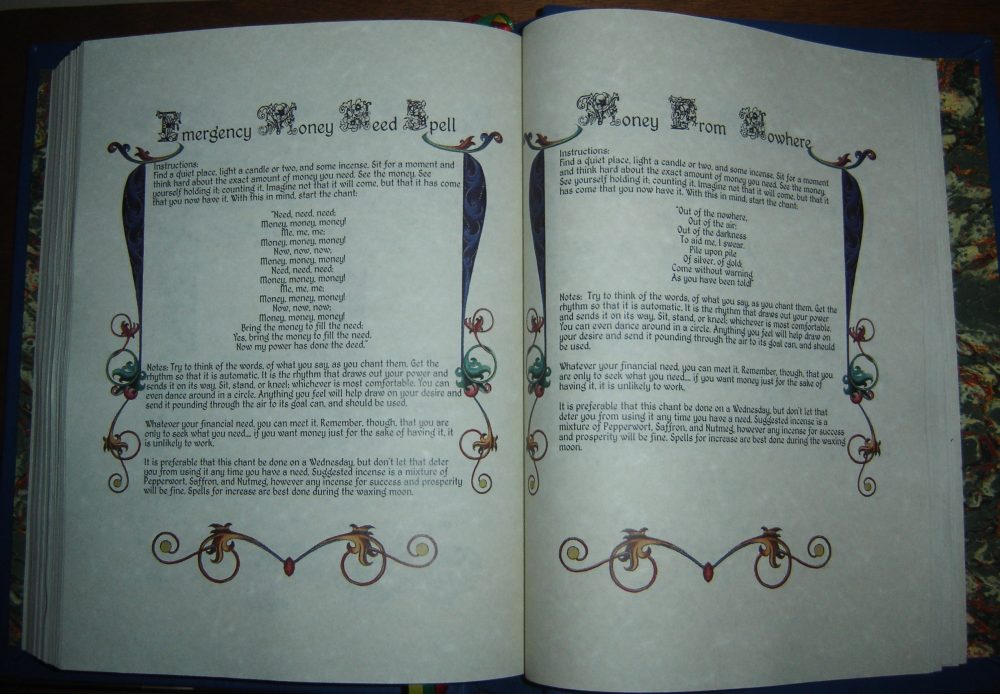 Emergency Money Need Spell
Instructions:
Find a quiet place, light a candle or two, and some incense. Sit for a moment and
think hard about the exact amount of money you need. See the money. See
yourself holding it; counting it. Imagine not that it will come, but that it has come
that you now have it. With this in mind, start the chant:
"Need, need, need;
Money, money, money!
Me, me, me;
Money, money, money!
Now, now, now;
Money, money, money!
Need, need, need;
Money, money, money!
Me, me, me;
Money, money, money!
Now, now, now;
Money, money, money!
Bring the money to fill the need;
Yes, bring the money to fill the need.
Now my power has done the deed."
Notes: Try to think of the words, of what you say, as you chant them. Get the
rhythm so that it is automatic. It is the rhythm that draws out your power and
sends it on its way. Sit, stand, or kneel; whichever is most comfortable. You can
even dance around in a circle. Anything you feel will help draw on your desire and
send it pounding through the air to its goal can, and should be used.
Whatever your financial need, you can meet it. Remember, though, that you are
only to seek what you need... if you want money just for the sake of having it, it
is unlikely to work.
It is preferable that this chant be done on a Wednesday, but don't let that deter
you from using it any time you have a need. Suggested incense is a mixture of
Pepperwort, Saffron, and Nutmeg, however any incense for success and prosperity
will be fine. Spells for increase are best done during the waxing moon.
Money From Nowhere
Instructions:
Find a quiet place, light a candle or two, and some incense. Sit for a moment
and think hard about the exact amount of money you need. See the money.
See yourself holding it; counting it. Imagine not that it will come, but that it
has come that you now have it. With this in mind, start the chant:
"Out of the nowhere,
Out of the air;
Out of the darkness
To aid me, I swear.
Pile upon pile
Of silver, of gold;
Come without warning
As you have been told!"
Notes: Try to think of the words, of what you say, as you chant them. Get the
rhythm so that it is automatic. It is the rhythm that draws out your power
and sends it on its way. Sit, stand, or kneel; whichever is most comfortable.
You can even dance around in a circle. Anything you feel will help draw on
your desire and send it pounding through the air to its goal can, and should
be used.
Whatever your financial need, you can meet it. Remember, though, that you
are only to seek what you need... if you want money just for the sake of
having it, it is unlikely to work.
It is preferable that this chant be done on a Wednesday, but don't let that
deter you from using it any time you have a need. Suggested incense is a
mixture of Pepperwort, Saffron, and Nutmeg, however any incense for success
and prosperity will be fine. Spells for increase are best done during the waxing
moon.